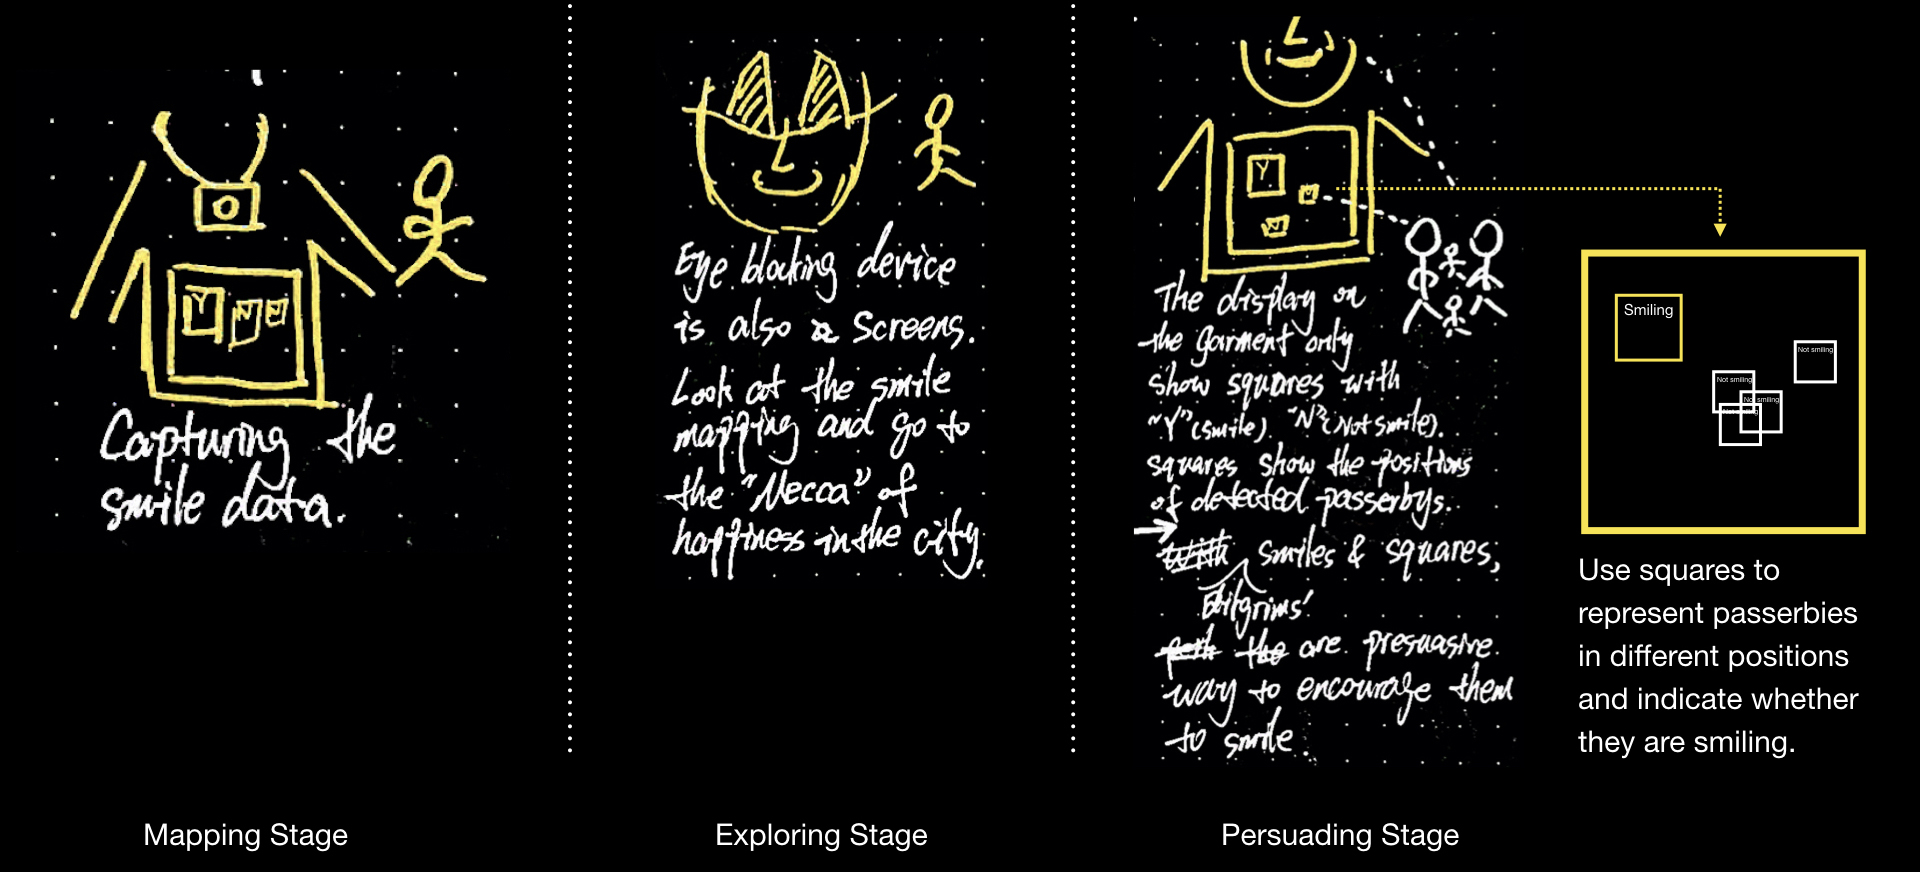 Y N N
Capturing the
smile data.
Mapping Stage
Eye blocking device
is also a Screens.
Look at the smile
mapping and go to
the "Mecca" of
happiness in the city.
Exploring Stage
Y
N
N
The display on
the garment only
show squares with
"Y"(smile). "N"(Not smile).
squares show the positions
of detected passerbys.
With smiles & squares,
Pilgrims'
the are presuasive
way to encourage them
to smile.
Persuading Stage
Smiling
Not smiling
Not smiling
Not smiling
Not smiling
Use squares to
represent passerbies
in different positions
and indicate whether
they are smiling.